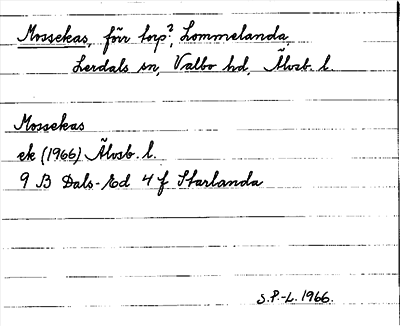 Mossekas, förr torp?, Lommelanda,
Lerdals sn, Valbo hd, Älvsb. l.
Mossekas
ek (1966) Älvsb. l.
9 B Dals-Ed 4 f Starlanda
S.P.-L. 1966.